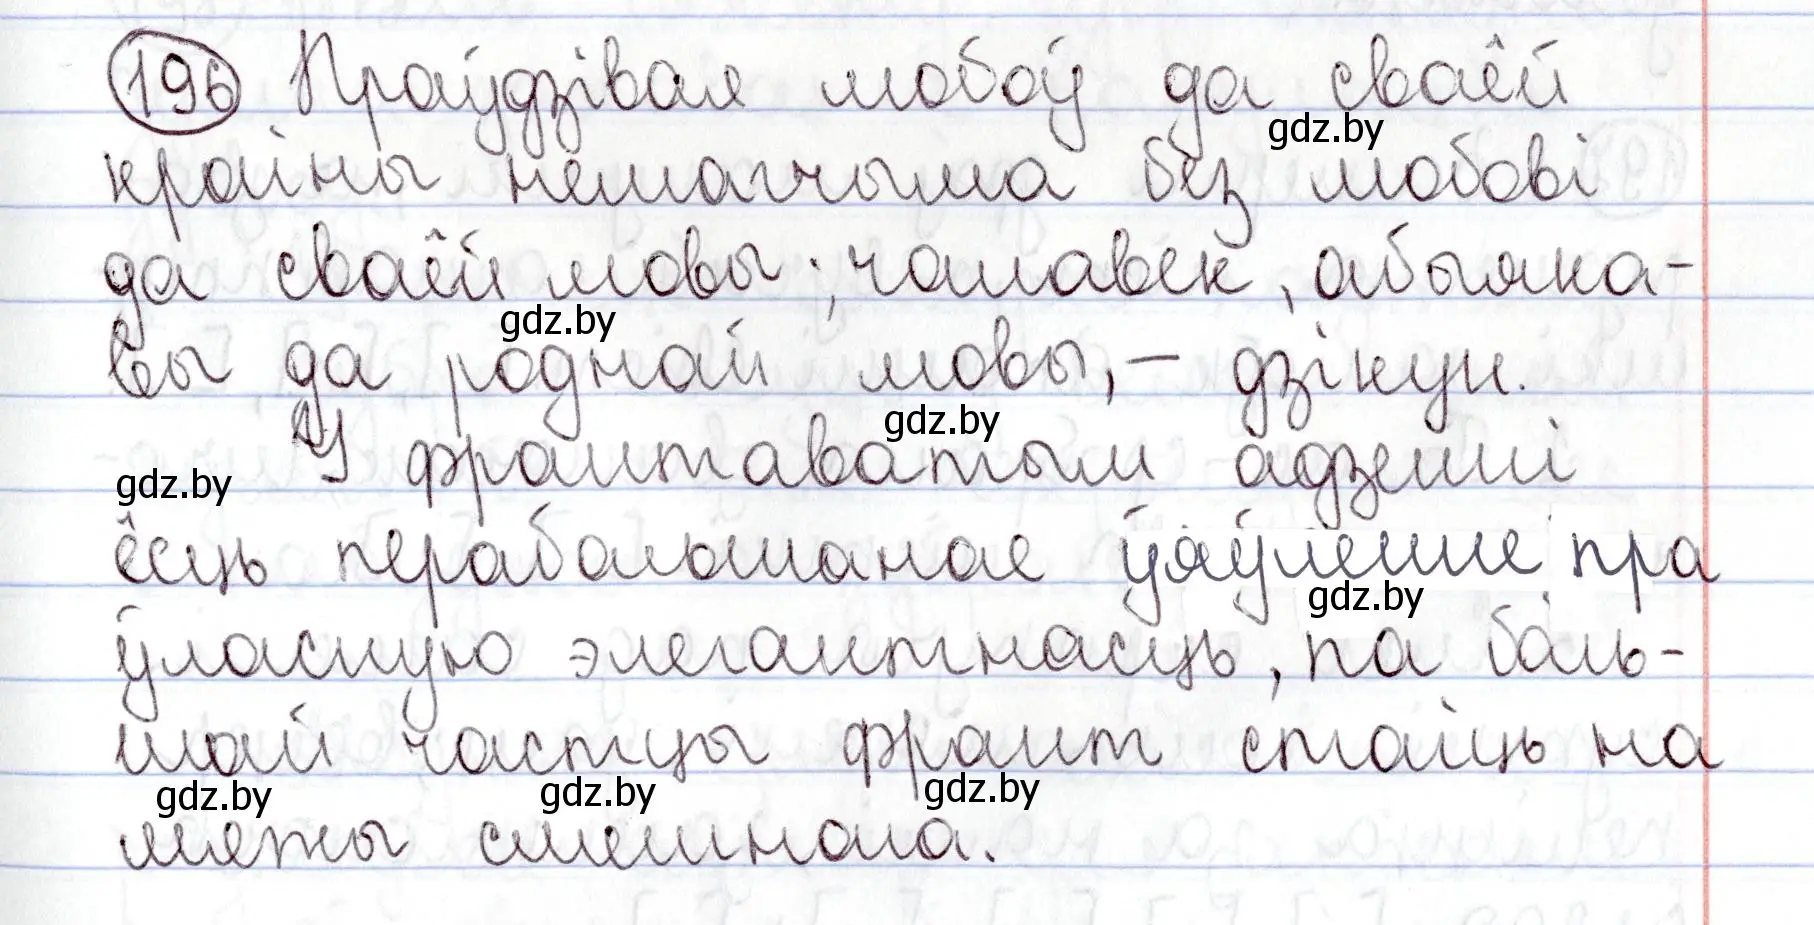 196 Праўдзівая любоў да сваёй
gdz.by
краіны немагчыма без любові
да сваёй мовы; чалавек, абыяка-
gdz.by
вы да роднай мовы, – дзікун.
gdz.by
У франтаватым адзенні
gdz.by
ёсць перабольшанае ўяўленне пра
gdz.by
ўласную элегантнасць, па боль-
шай частцы франт стаіць на
gdz.by gdz.by gdz.by
мяжы смешнога.